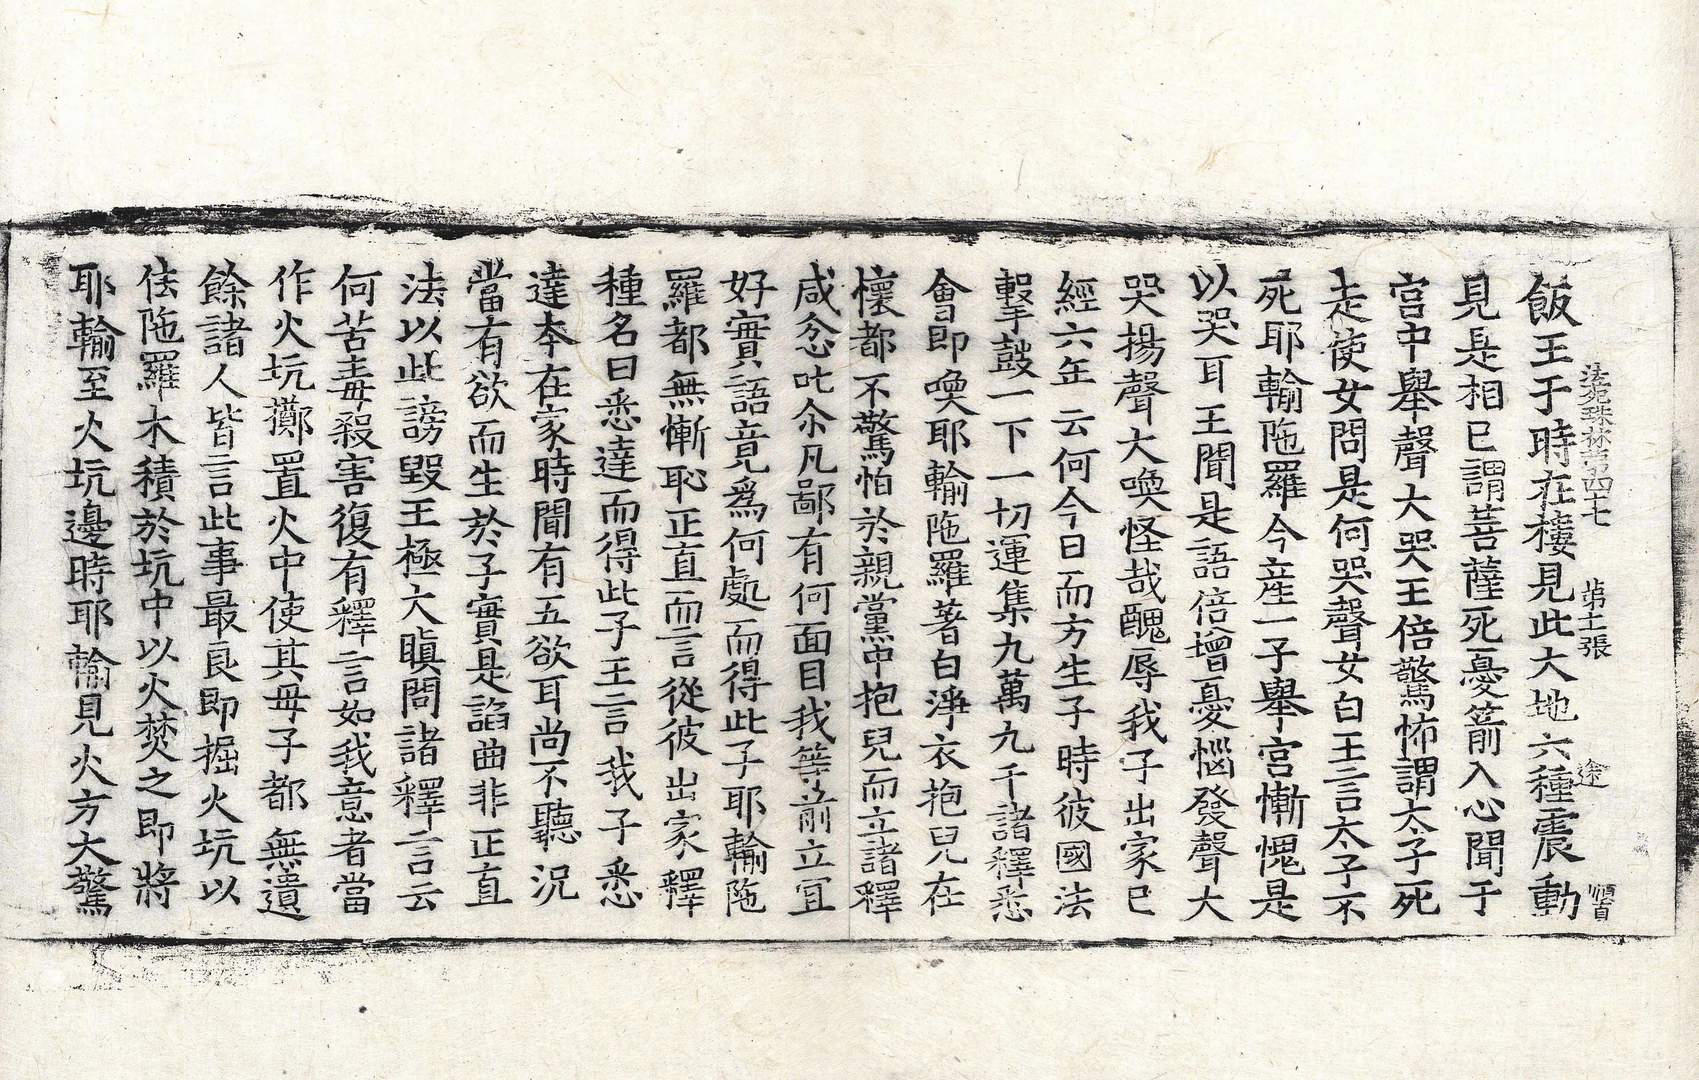 法苑珠林第四十七　第十一張　途　順百
飯王于時在樓見此大地六種震動
見是相已謂菩薩死憂箭入心聞于
宮中舉聲大哭王倍驚怖謂太子死
走使女問是何哭聲女白王言太子不
死耶輸陁羅今產一子舉宮慚愧是
以哭耳王聞是語倍增憂惱發聲大
哭揚聲大喚怪哉醜辱我子出家已
經六年云何今日而方生子時彼國法
擊鼓一下一切運集九萬九千諸釋悉
會即喚耶輸陁羅著白淨衣抱兒在
懷都不驚怕於親黨中抱兒而立諸釋
咸忿叱尒凡鄙有何面目我等前立宜
好實語竟爲何處而得此子耶輸陁
羅都無慚恥正直而言從彼出家釋
種名曰悉達而得此子王言我子悉
達本在家時聞有五欲耳尚不聽況
當有欲而生於子實是諂曲非正直
法以此謗毀王極大瞋問諸釋言云
何苦毒殺害復有釋言如我意者當
作火坑擲置火中使其母子都無遺
餘諸人皆言此事最良即掘火坑以
佉陁羅木積於坑中以火焚之即將
耶輸至火坑邊時耶輸見火方大驚